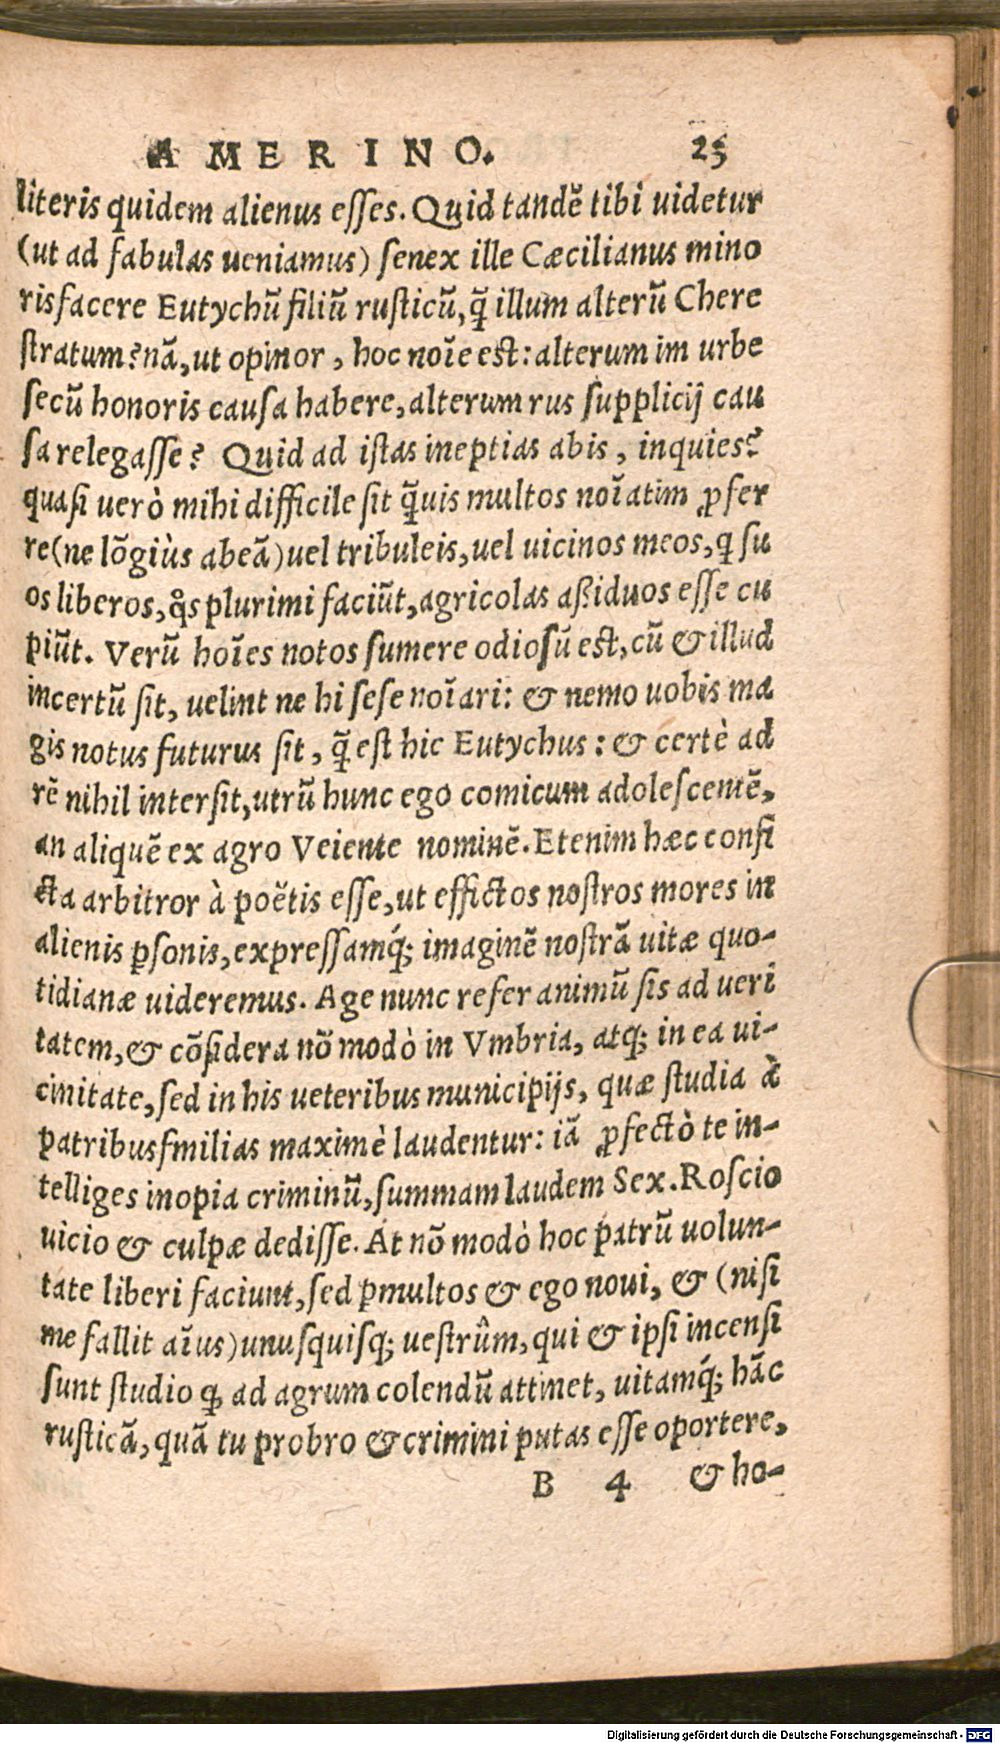 AMERINO. 23
literis quidem alienus esses. Quid tandẽ tibi uidetur
(ut ad fabulas ueniamus) senex ille Cæcilianus mino
ris facere Eutychũ filiũ rusticũ, q̃ illum alterũ Chere
stratum? nã, ut opinor, hoc noĩe est: alterum im urbe
secũ honoris causa habere, alterum rus supplicij cau
sa relegasse? Quid ad istas ineptias abis, inquies?
quasi uerò mihi difficile sit q̃uis multos noĩatim ꝓfer
re (ne lõgiùs abeã) uel tribuleis, uel uicinos meos, q su
os liberos, q̊s plurimi faciũt, agricolas aßiduos esse cu
piũt. Verũ hoĩes notos sumere odiosũ est, cũ & illud
incertũ sit, uelint ne hi sese noĩari: & nemo uobis ma
gis notus futurus sit, q̃ est hic Eutychus: & certè ad
rẽ nihil intersit, utrũ hunc ego comicum adolescentẽ,
an aliquẽ ex agro Veiente nominẽ. Etenim hæc confi
cta arbitror à poëtis esse, ut effictos nostros mores in
alienis ꝑsonis, expressamq́; imaginẽ nostrã uitæ quo-
tidianæ uideremus. Age nunc refer animũ sis ad ueri
tatem, & cõsidera nõ modò in Vmbria, atq; in ea ui-
cinitate, sed in his ueteribus municipijs, quæ studia à
patribusfmilias maximè laudentur: iã ꝓfectò te in-
telliges inopia criminũ, summam laudem Sex. Roscio
uicio & culpæ dedisse. At nõ modò hoc patrũ uolun-
tate liberi faciunt, sed ꝑmultos & ego noui, & (nisi
me fallit aĩus) unusquisq; uestrûm, qui & ipsi incensi
sunt studio q ad agrum colendũ attinet, uitamq́; hãc
rusticã, quã tu probro & crimini putas esse oportere,
B 4 & ho-
Digitalisierung gefördert durch die Deutsche Forschungsgemeinschaft - DFG